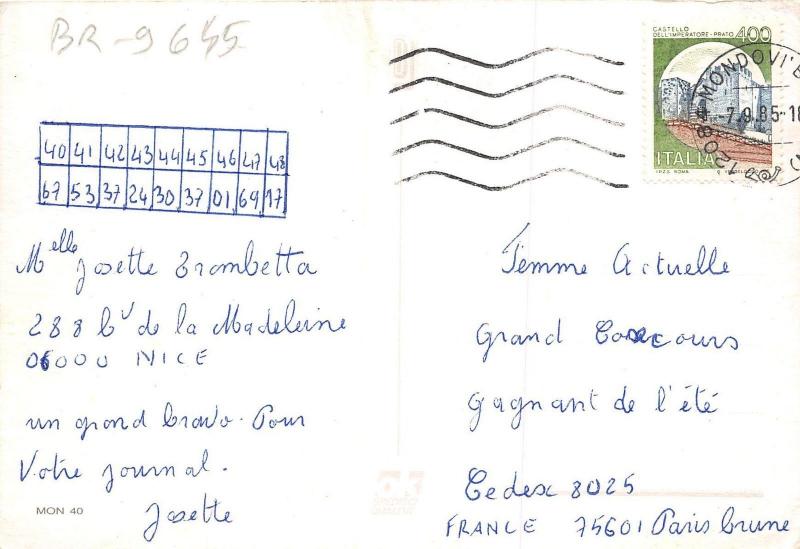 BR-9645
40 41 42 43 44 45 46 47 48
67 53 37 24 30 37 01 69 17
Melle Josette Trombetta
288 bd de la Madeleine
06000 NICE
un grand bravo. Pour
Votre journal.
Josette
MON 40
CASTELLO
DELL'IMPERATORE-PRATO 400
ITALIA
I.P.Z.S. ROMA
MONDOVI'
-7.9.85-18
Femme Actuelle
Grand Concours
Gagnant de l'été
Cedex 8025
FRANCE 75601 Paris Brune